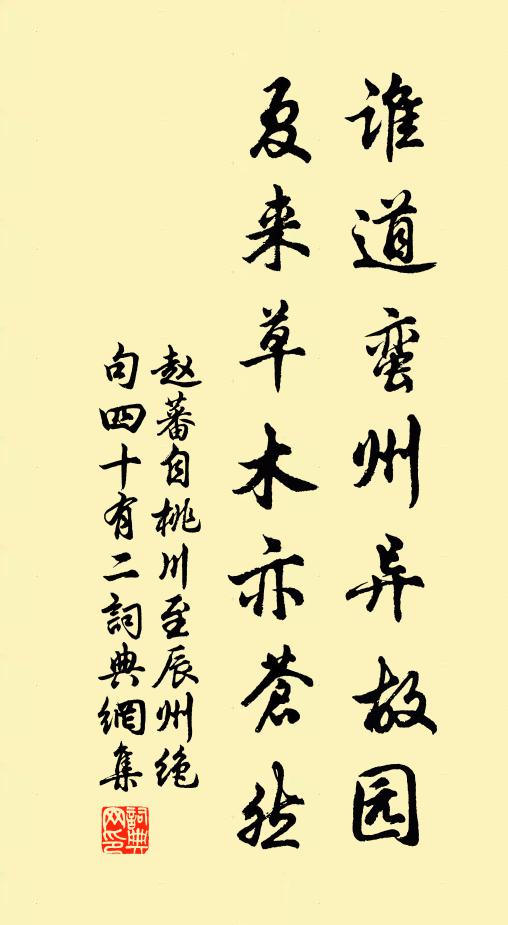 谁道蛮州异故园
夏来草木亦苍然
赵蕃自桃川至辰州绝
句四十有二詞典網集
詞典
网印